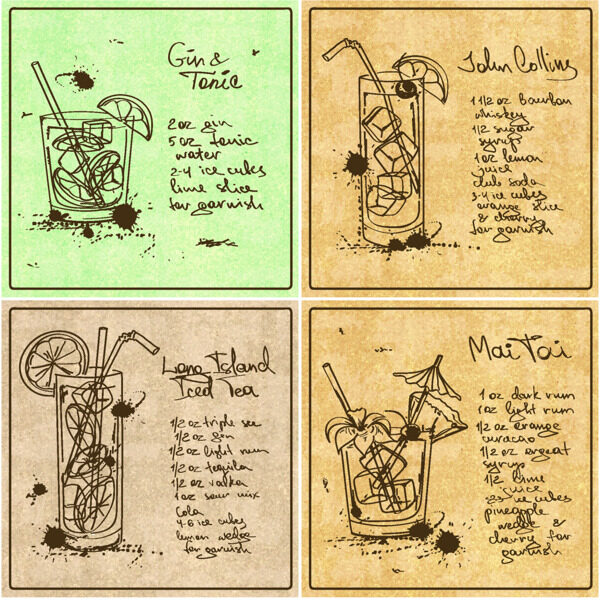 Gin &
Tonic
2 oz gin
5 oz tonic
water
2-4 ice cubes
lime slice
for garnish
John Collins
1 1/2 oz bourbon
whiskey
1/2 sugar
syrup
1 oz lemon
juice
club soda
3-4 ice cubes
orange slice
& cherry
for garnish
Long Island
Iced Tea
1/2 oz triple sec
1/2 oz gin
1/2 oz light rum
1/2 oz tequila
1/2 oz vodka
1 oz sour mix
Cola
4-6 ice cubes
lemon wedge
for garnish
Mai Tai
1 oz dark rum
1 oz light rum
1/2 oz orange
curacao
1/2 oz orgeat
syrup
1/2 lime
juice
2-3 ice cubes
pineapple
wedge &
cherry for
garnish